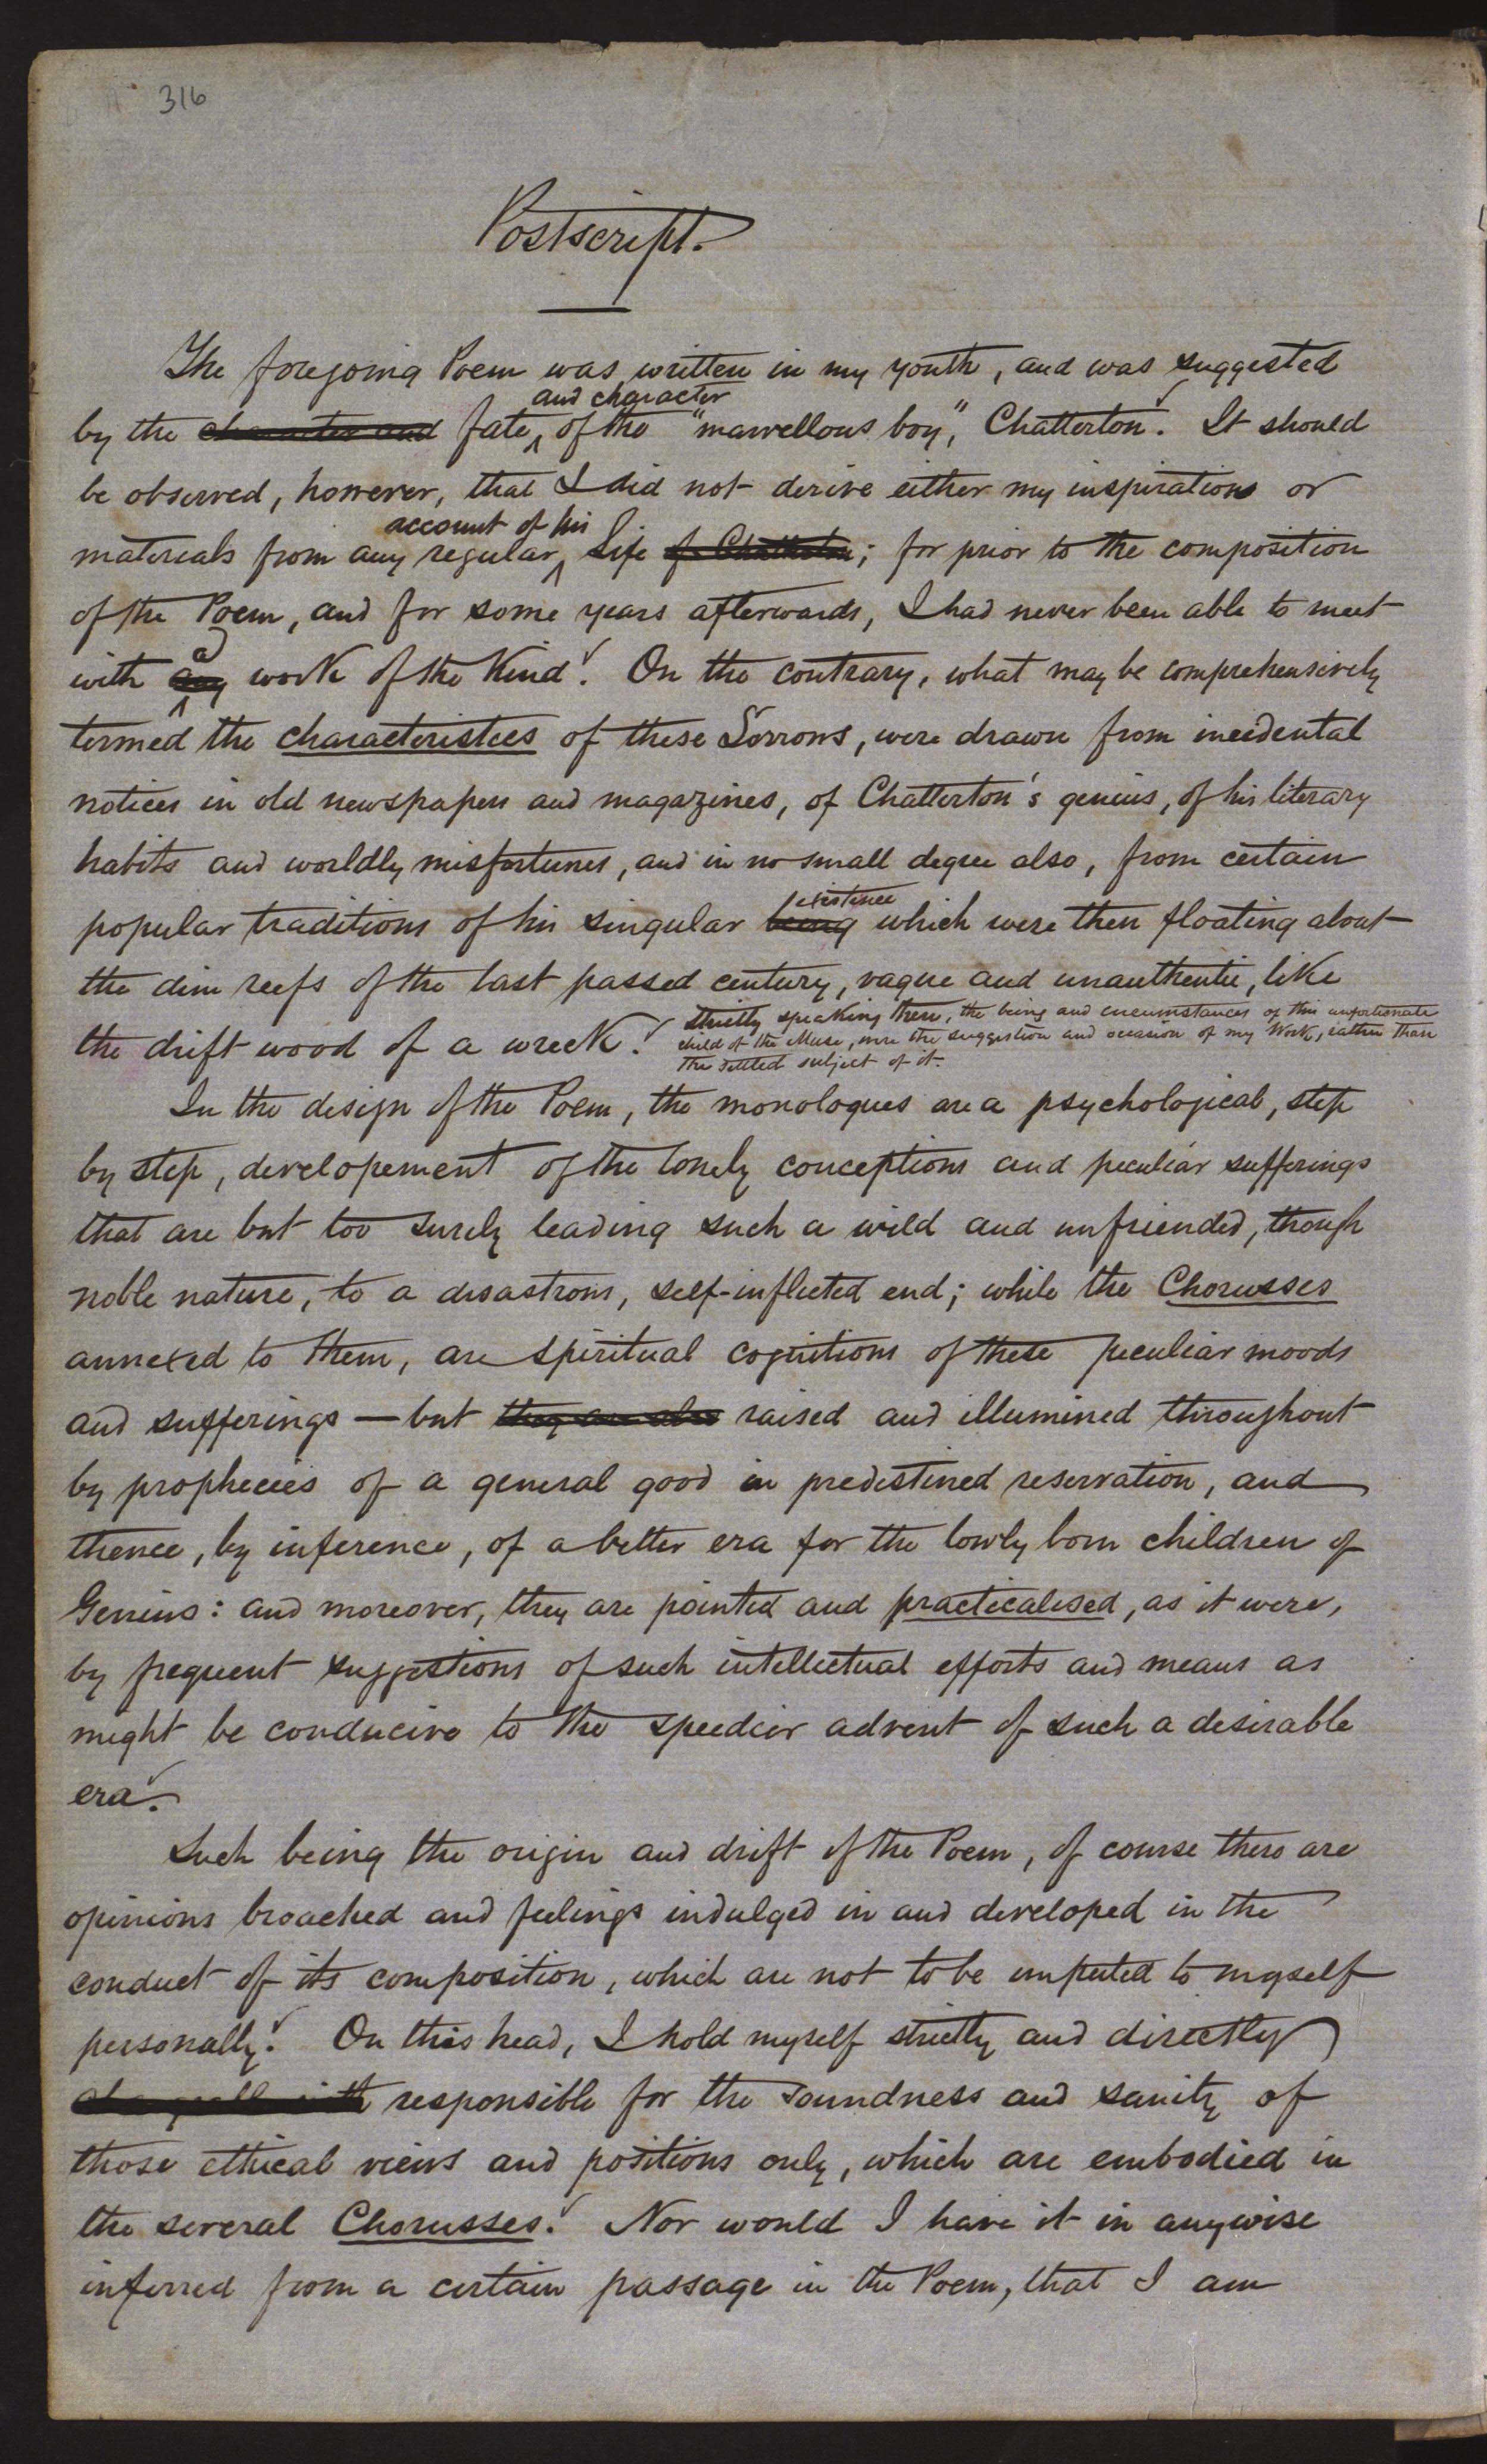 316
Postscript.
The foregoing Poem was written in my youth, and was suggested
and character
by the character and fate, of the "marvellous boy", Chatterton. It should
be observed, however, that I did not derive either my inspirations or
account of his
materials from any regular life of Chatterton; for prior to the composition
of the Poem, and for some years afterwards, I had never been able to meet
a
with any work of the kind. On the contrary, what may be comprehensively
termed the characteristics of these Sorrows, were drawn from incidental
notices in old newspapers and magazines, of Chatterton's genius, of his literary
habits and worldly misfortunes, and in no small degree also, from certain
existence
popular traditions of his singular being which were then floating about
the dim reefs of the last passed century, vague and unauthentic, like
the drift wood of a wreck.
Strictly speaking then, the being and circumstances of this unfortunate
child of the Muse, were the suggestion and occasion of my Work, rather than
the settled subject of it.
In the design of the Poem, the monologues are a psychological, step
by step, developement of the lonely conceptions and peculiar sufferings
that are but too surely leading such a wild and unfriended, though
noble nature, to a disastrous, self-inflicted end; while the Chorusses
annexed to them, are spiritual cognitions of these peculiar moods
and sufferings — but they are also raised and illumined throughout
by prophecies of a general good in predestined reservation, and
thence, by inference, of a better era for the lowly born children of
Genius: and moreover, they are pointed and practicalised, as it were,
by frequent suggestions of such intellectual efforts and means as
might be conducive to the speedier advent of such a desirable
era.
Such being the origin and drift of the Poem, of course there are
opinions broached and feelings indulged in and developed in the
conduct of its composition, which are not to be imputed to myself
personally. On this head, I hold myself strictly and directly
responsible for the soundness and sanity of
those ethical views and positions only, which are embodied in
the several Chorusses. Nor would I have it in anywise
inferred from a certain passage in the Poem, that I am